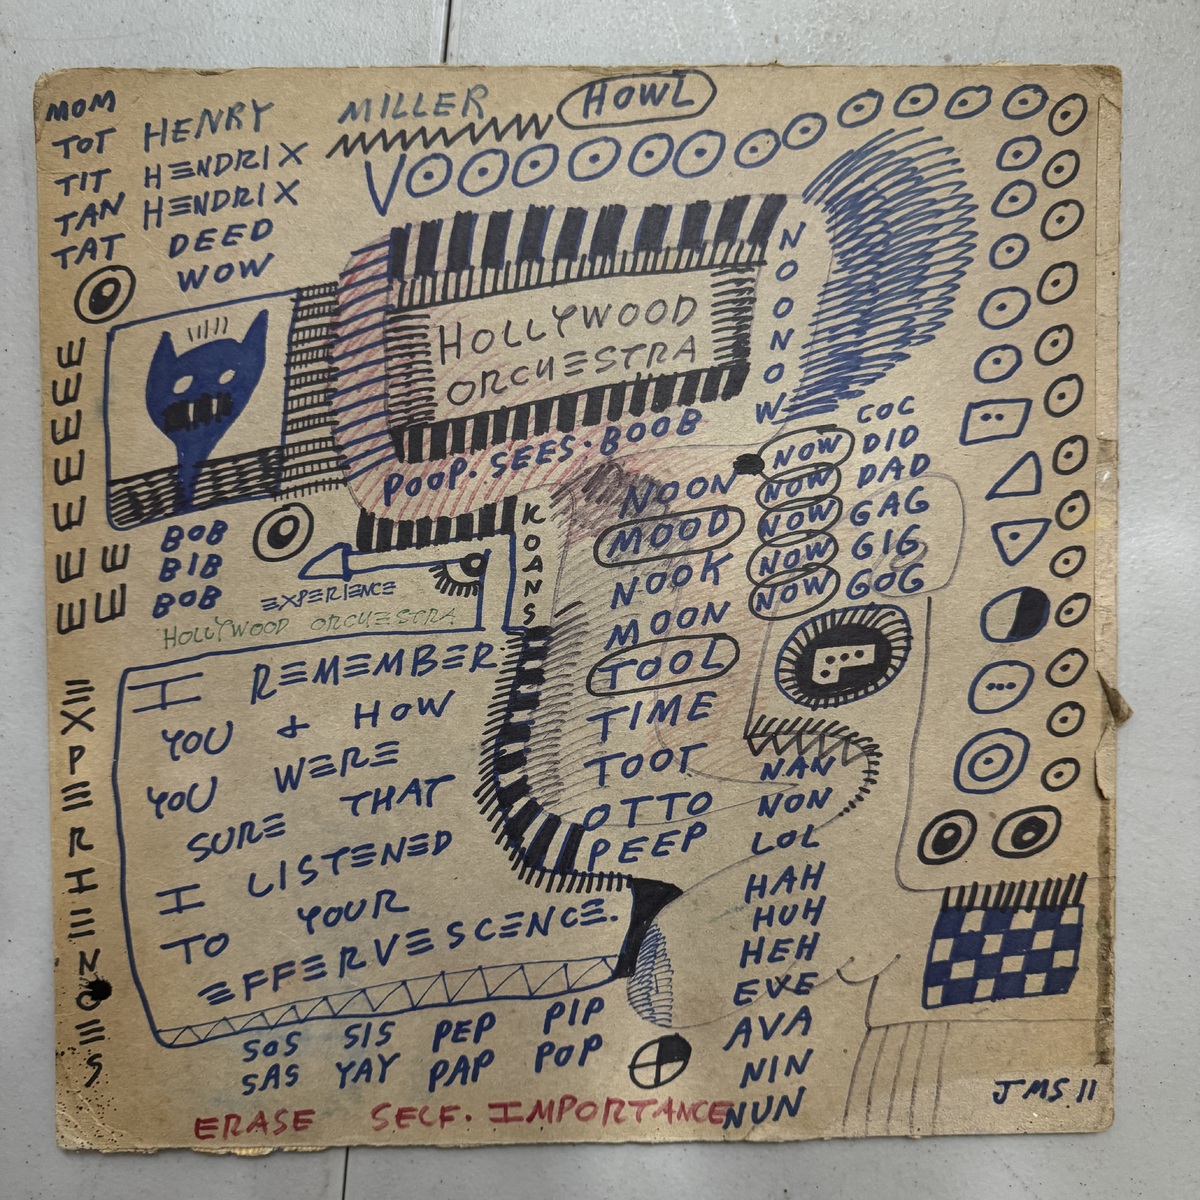 MOM
TOT
TIT
TAN
TAT
HENRY MILLER
HENDRIX
HENDRIX
DEED
WOW
HOWL
VOOOOOOOOOOOOO
HOLLYWOOD
ORCHESTRA
NOONOW
POOP. SEES. BOOB
KOANS
BOB
BIB
BOB
EXPERIENCE
HOLLYWOOD ORCHESTRA
EEEEEEE
EE
EXPERIENCES
I REMEMBER
YOU & HOW
YOU WERE
SURE THAT
I LISTENED
TO YOUR
EFFERVESCENCE.
NOON
MOOD
NOOK
MOON
TOOL
TIME
TOOT
OTTO
PEEP
NOW
NOW
NOW
NOW
NOW
COC
DID
DAD
GAG
GIG
GOG
NAN
NON
LOL
HAH
HUH
HEH
EVE
AVA
NIN
NUN
SOS SIS PEP PIP
SAS YAY PAP POP
ERASE SELF. IMPORTANCE
JMS 11